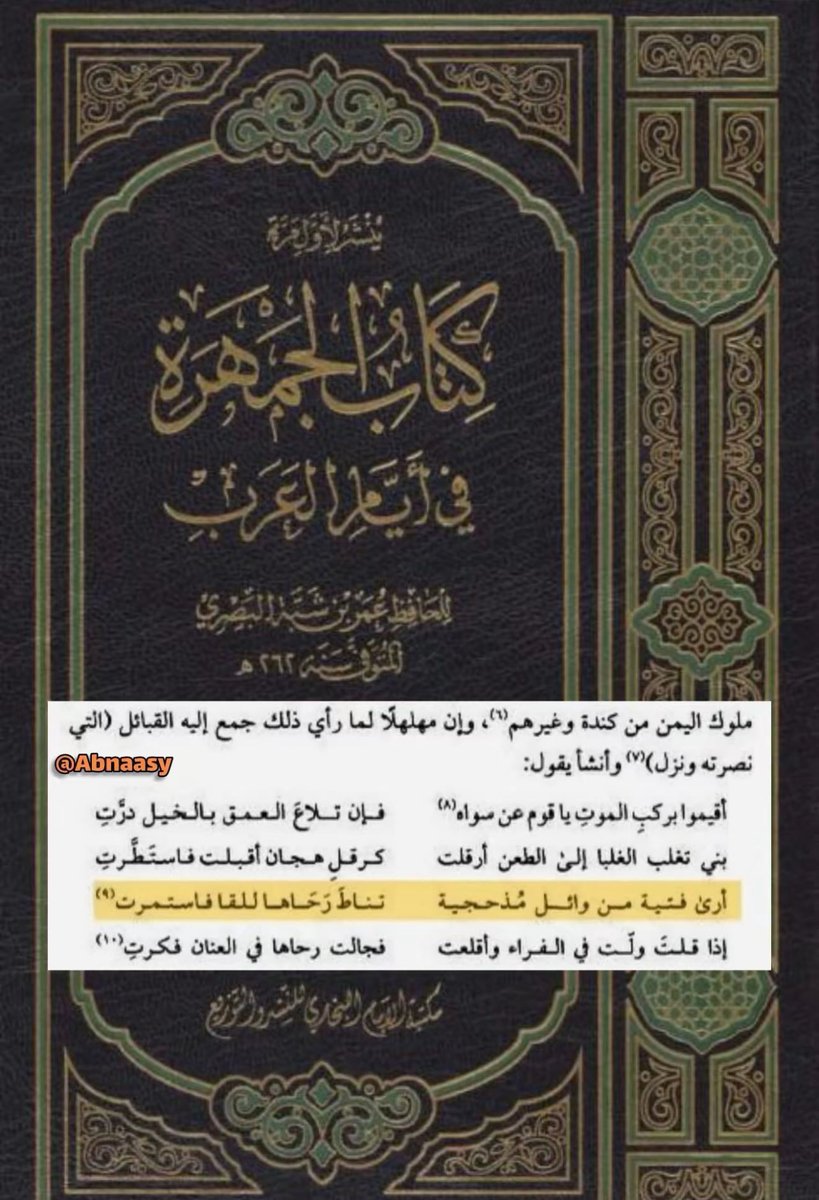 يُنْشَرُ لِأَوَّلِ مَرَّةٍ
كِتَابُ الْجَمْهَرَةِ
فِي أَيَّامِ الْعَرَبِ
لِلْحَافِظِ عُمَرَ بْنِ شَبَّةَ الْبَصْرِيِّ
الْمُتَوَفَّى سَنَةَ ٢٦٢ هـ
ملوك اليمن من كندة وغيرهم(٦)، وإن مهلهلًا لما رأي ذلك جمع إليه القبائل (التي
نصرته ونزل)(٧) وأنشأ يقول:
@Abnaasy
أقيموا بركبِ الموتِ يا قوم عن سواه(٨) فـإن تـلاعَ الـعـمـق بـالـخـيـل درَّتِ
بني تغلب الغلبا إلىٰ الطعن أرقلت كـرقـلِ هـجـان أقـبـلـت فـاستَـطَّـرتِ
أرىٰ فـتـيـة مـن وائـل مُـذحـجـيـة تـنـاطَ رَحَـاهـا لـلـقـا فـاسـتـمـرت(٩)
إذا قـلـتَ ولّـت في الـفـراء وأقـلـعـت فـجـالـت رحـاهـا في الـعـنـان فـكـرتِ(١٠)
مكتبة الإمام البخاري للنشر والتوزيع